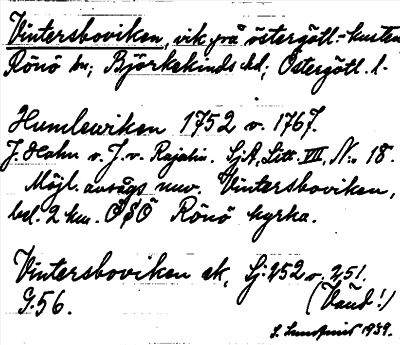 Vintersboviken, vik på östergötl.-kusten
Rönö sn; Björkekinds hd; Östergötl. l.
Humlewiken 1752 o. 1767.
J. Hahn o. J. v. Rajalin. SjA, Litt. VII, No 18.
Möjl. avsågs nuv. Vintersboviken,
bel. 2 km. OSO Rönö kyrka.
Vintersboviken ek, Sj: 252 o. 251.
G. 56. (Vånd!)
1939.